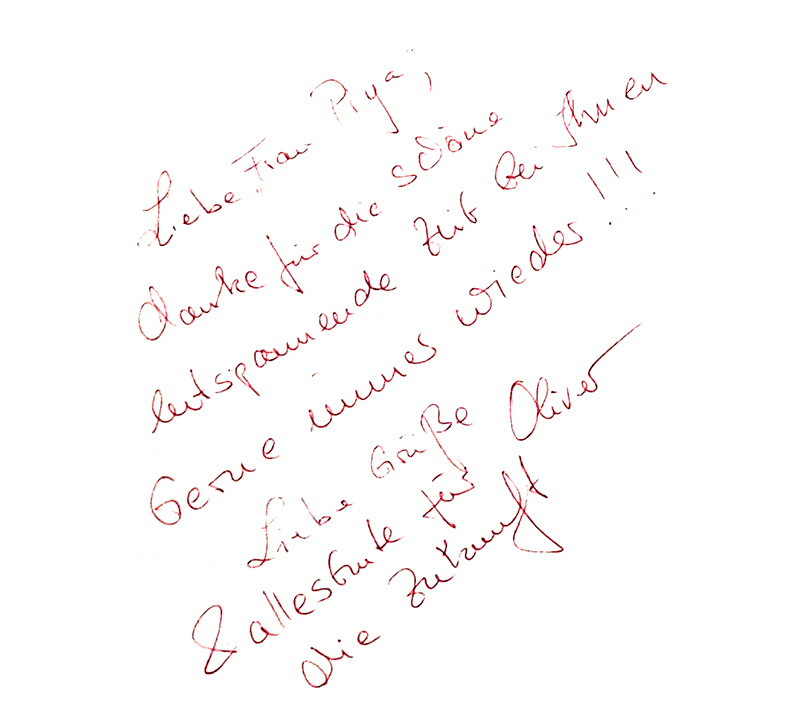 Liebe Frau Piya,
danke für die schöne
entspannende Zeit bei Ihnen
Gerne immer wieder!!!
Liebe Grüße Oliver
& alles Gute für
die Zukunft